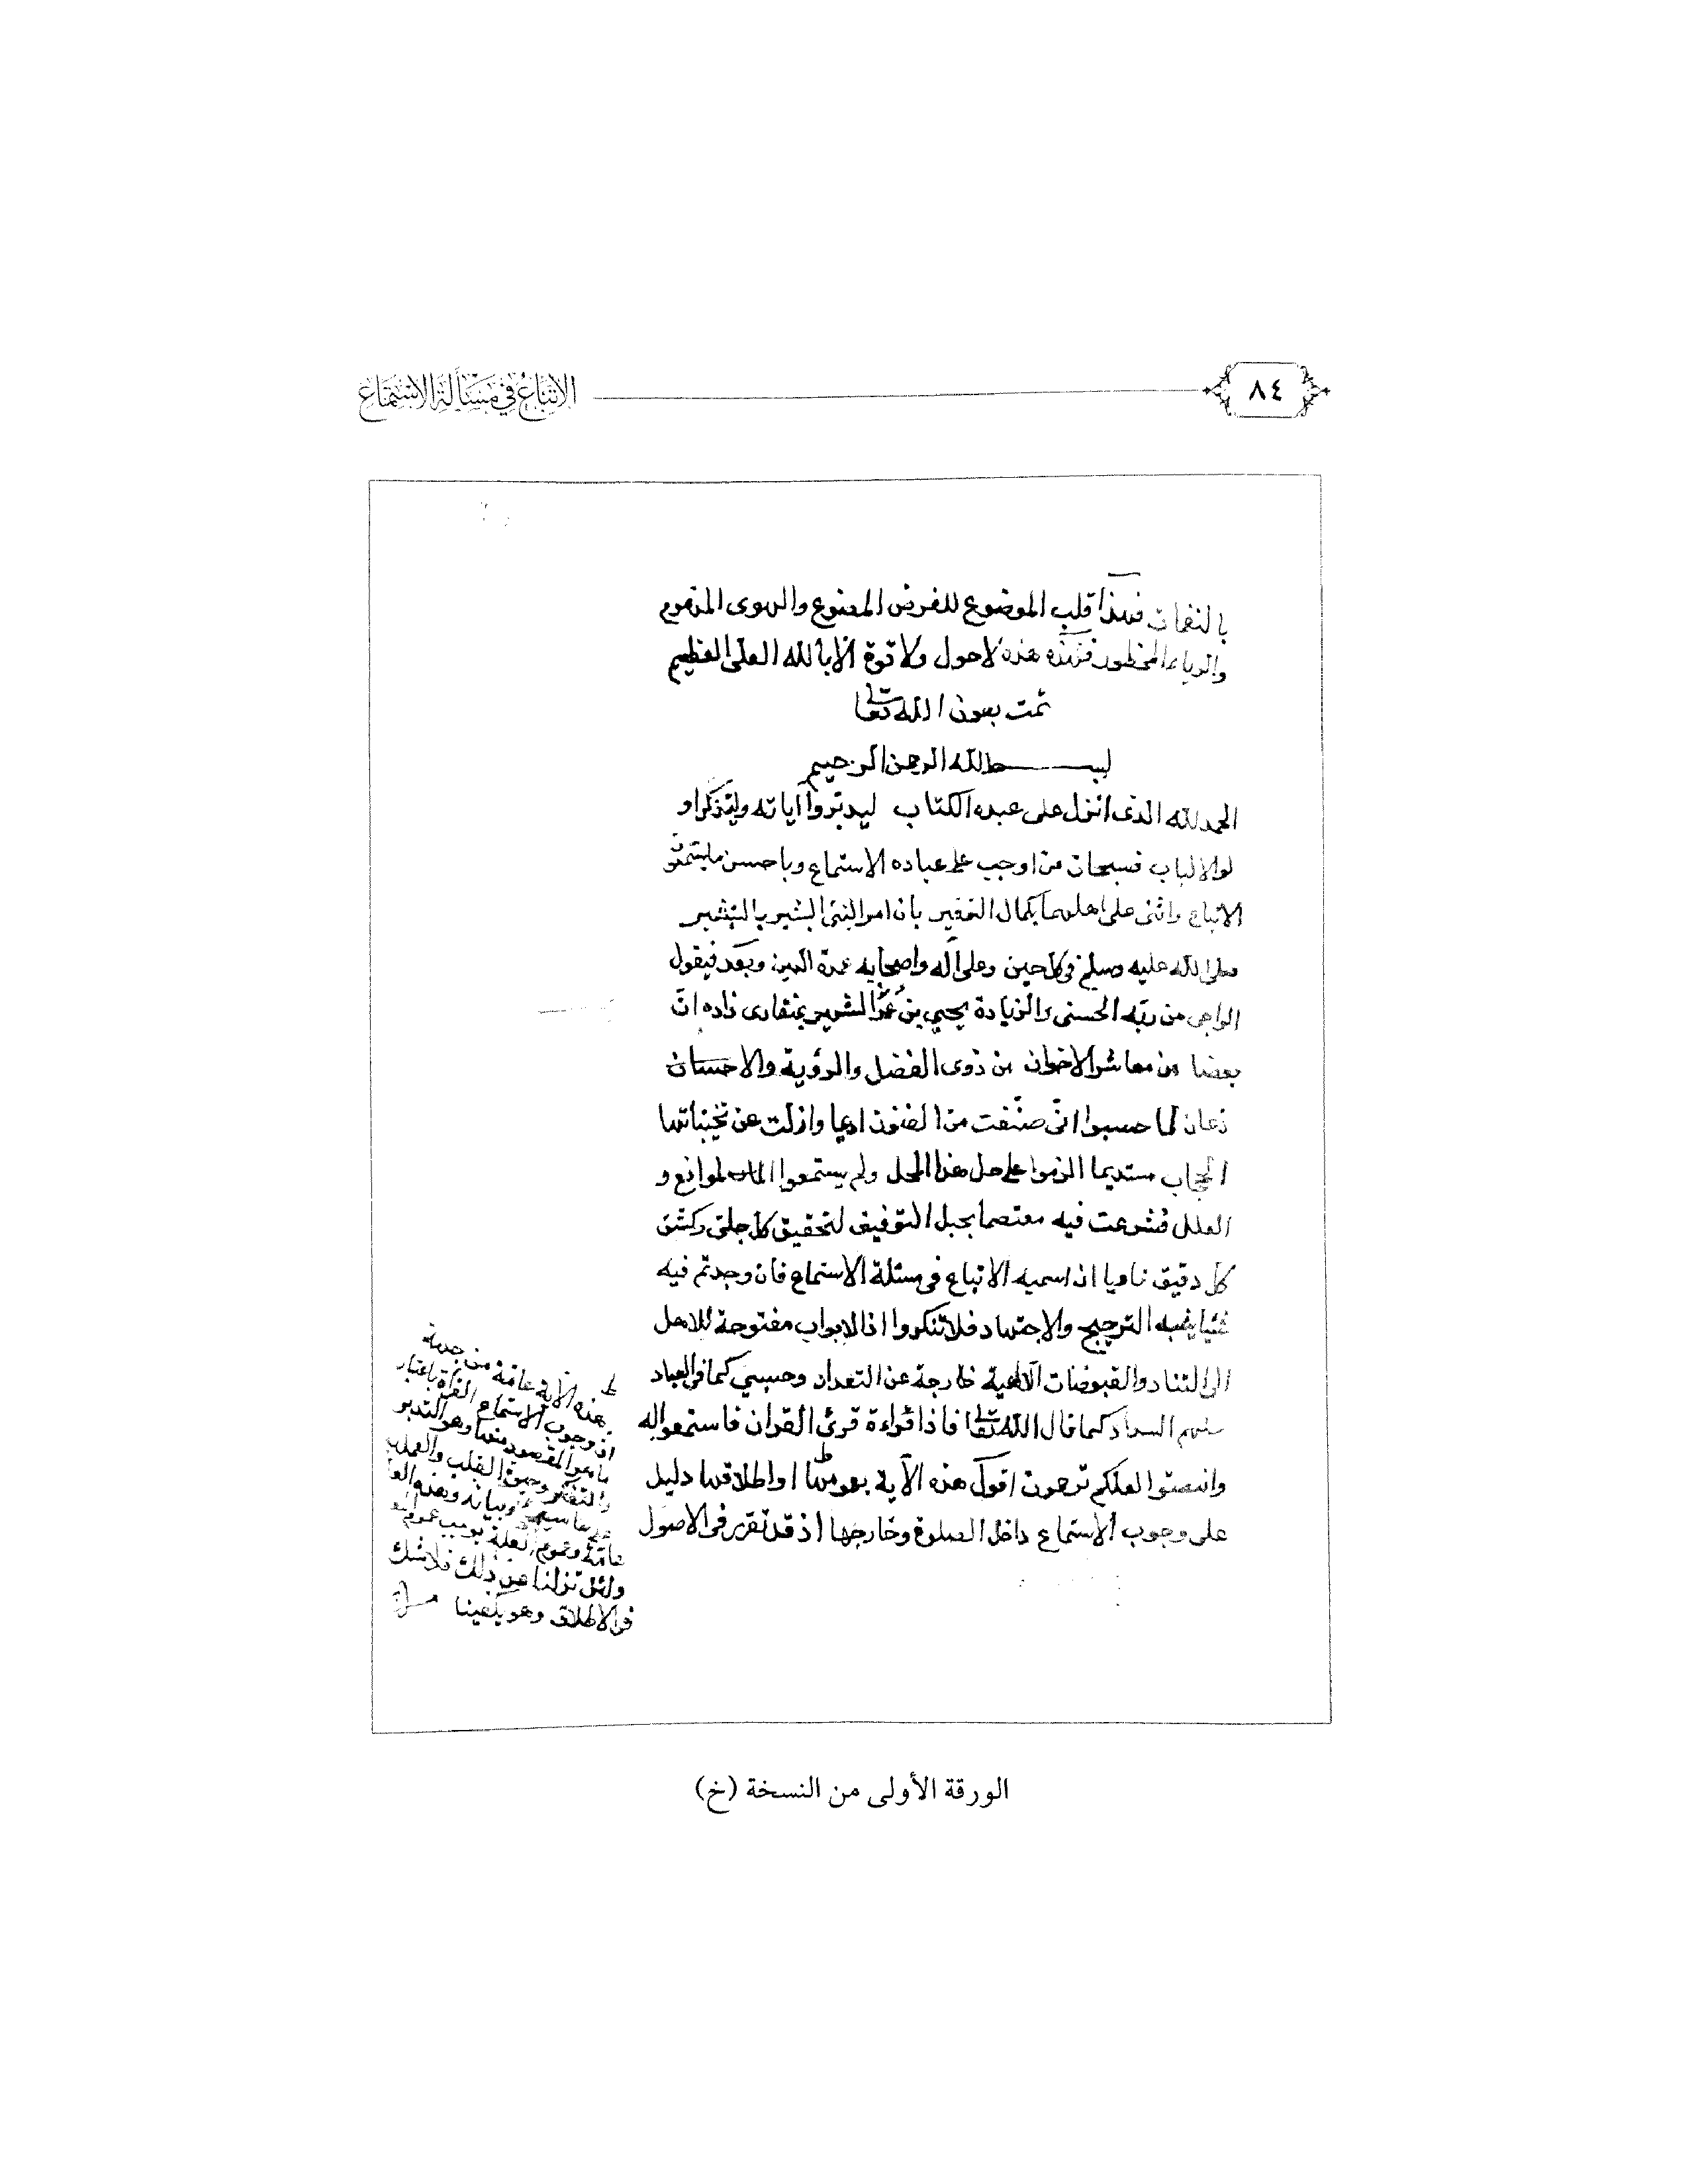 ٨٤
الاتباع في مسألة الاستماع
بالنغمات فهذا قلب الموضوع للغرض المصنوع والهوى المذموم
والرياء المحظور فهذه هذه لاحول ولا قوة الا بالله العلى العظيم
تمت بعون الله تعالى
بسم الله الرحمن الرحيم
الحمد لله الذى انزل على عبده الكتاب ليدبروا آياته وليتذكر او
لوالالباب فسبحان من اوجب على عباده الاستماع وباحسن مايستمعون
الاتباع واثنى على اهلهما بكمال التوقير بان امر النبى البشير بالتبشير
صلى الله عليه وسلم فى كل حين وعلى آله واصحابه عمدة الدين وبعد فيقول
الراجى من ربه الحسنى والزيادة يحيى بن عمر الشهير بمنقارى زاده ان
بعضا من معاشر الاخوان من ذوى الفضل والرؤية والاحسان
زمان لما حسبوا انى صنفت من الفنون وازلت عن مخبئاتها
الحجاب مستديما الزموا على حل هذا المحل ولم يستمعوا الموانع و
العلل فشرعت فيه معتصما بحبل التوفيق لتحقيق كل جلى وكشف
كل دقيق ناويا ان اسميه الاتباع فى مسئلة الاستماع فان وجدتم فيه
شيئا يشبه الترجيح والاجتهاد فلا تنكروا اذ الابواب مفتوحة للاهل
الى التناد والفيوضات الالهية خارجة عن التعداد وحسبى كما فى العباد
منهم السداد كما قال الله تعالى فاذا قراءة قرئ القران فاستمعوا له
وانصتوا لعلكم ترحمون اقول هذه الآية بعومها او اطلاقها دليل
على وجوب الاستماع داخل الصلوة وخارجها اذ قد تقرر فى الاصول
هذه الآية عامة من جهة
ان وجوب الاستماع القراة باعتبار
ماهو المقصود منها وهو التدبر
والتفكر وحيوة القلب والعمل
على ما سيجئ بيانه وهذه
عامة وعموم العلة يوجب عموم
ولئن تنزلنا عن ذلك فلا شك
فى الاطلاق وهو يكفينا
الورقة الأولى من النسخة (خ)